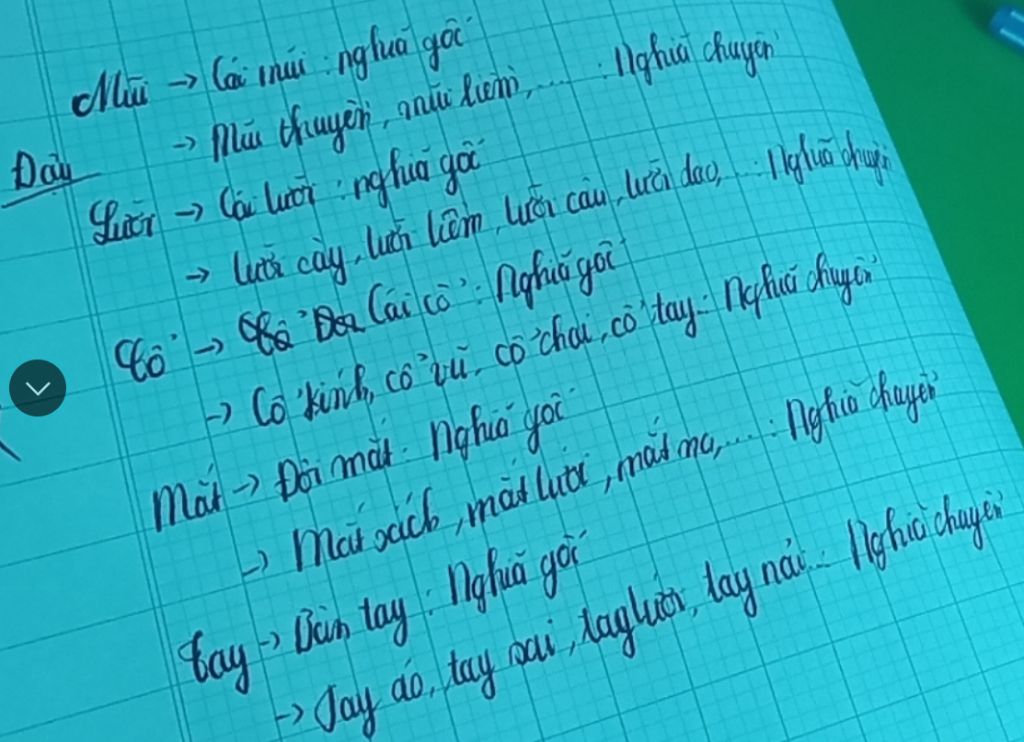 Mũi → Cái mũi : nghĩa gốc
→ Mũi thuyền, mũi kim,.... : Nghĩa chuyển
Đây
Lưỡi → Cái lưỡi : nghĩa gốc
→ lưỡi cày, lưỡi liềm, lưỡi câu, lưỡi dao, ... Nghĩa chuyển
Cổ → Cái cổ : Nghĩa gốc
→ Cổ kính, cổ vũ, cổ chai, cổ tay : Nghĩa chuyển
Mắt → Đôi mắt : Nghĩa gốc
→ Mắt xích, mắt lưới, mắt na,.... : Nghĩa chuyển
Tay → Bàn tay : Nghĩa gốc
→ Tay áo, tay sai, tay lưới, tay nải... Nghĩa chuyển